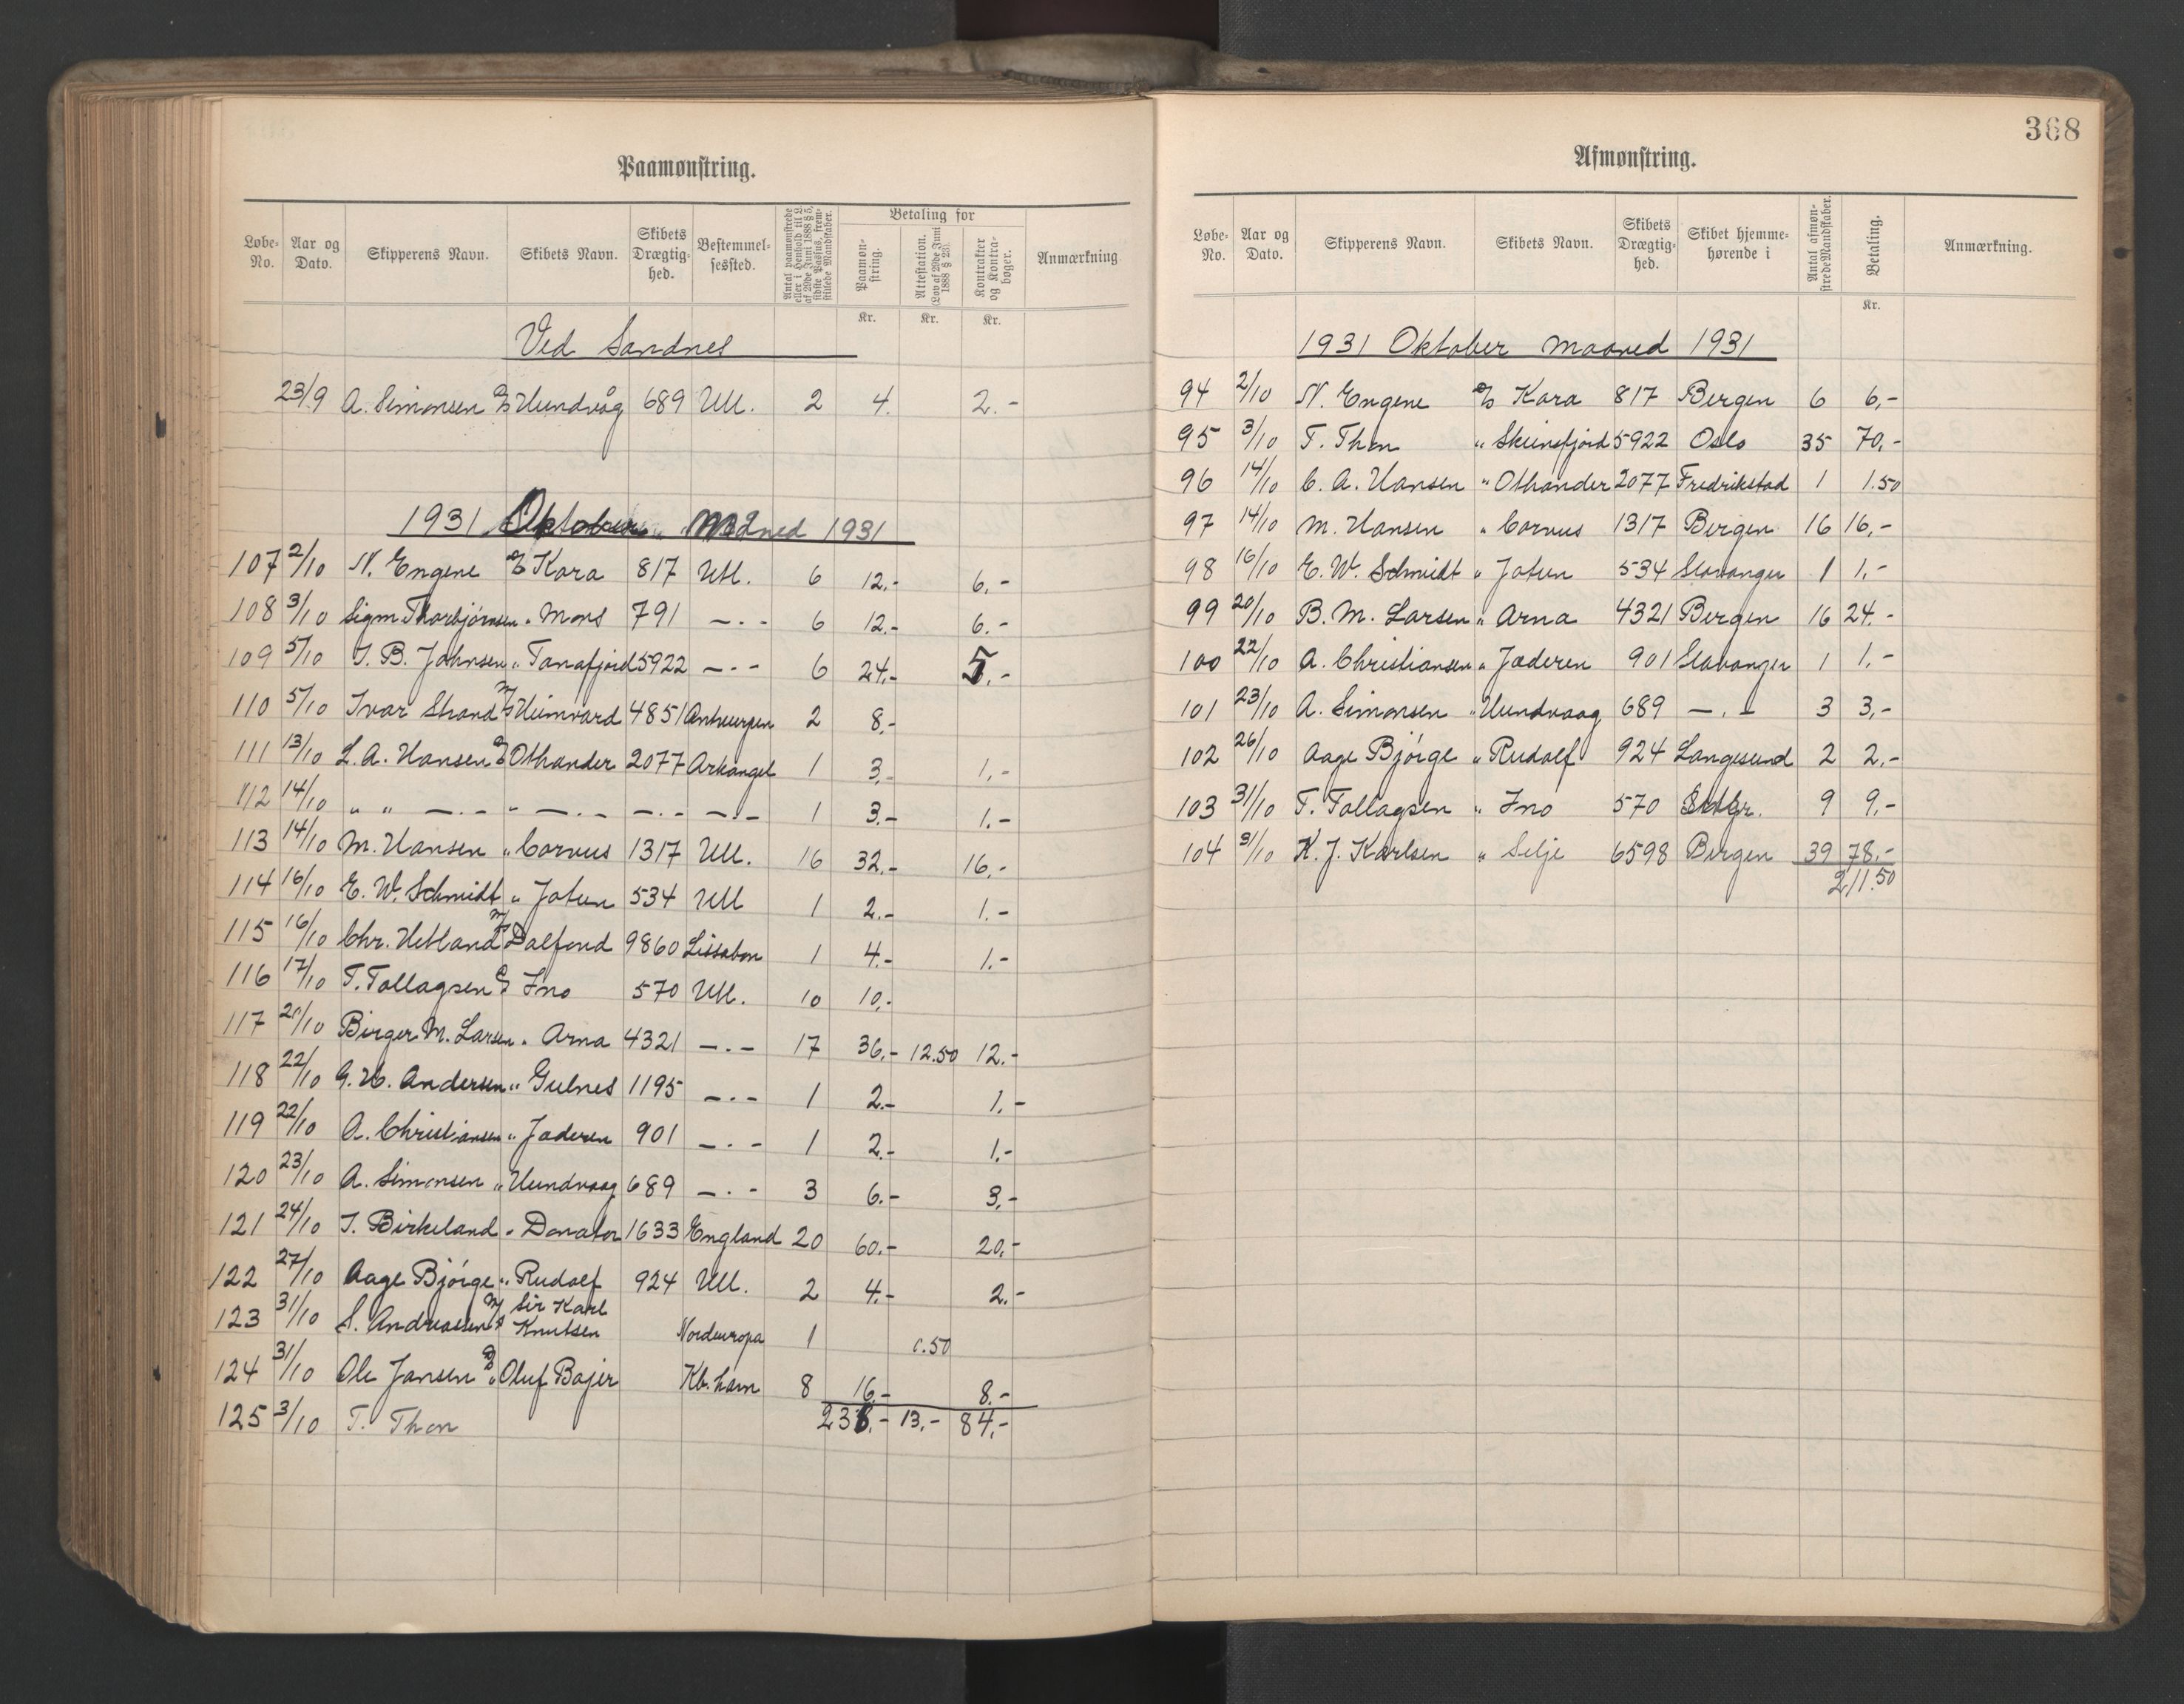 Paamønstring.
Løbe-No. | Aar og Dato. | Skipperens Navn. | Skibets Navn. | Skibets Drægtig-hed. | Bestemmel-sessted. | Antal paamønstrede eller i Henhold til L. af 29de Juni 1888 § 5, sidste Passus, frem-stillede Mandskaber. | Betaling for | Paamøn-string. Kr. | Attestation. (Lov af 29de Juni 1888 § 25). Kr. | Kontrakter og Kontra-bøger. Kr. | Anmærkning.
Ved Sandnes
23/9 A. Simonsen D/S Hundvåg 689 Utl. 2 4. 2.-
1931 Oktober Måned 1931
107 2/10 N. Engene D/S Kora 817 Utl. 6 12.- 6.-
108 3/10 Sigm Thorbjørnsen " Mons 791 —.- 6 12.- 6.-
109 5/10 J. B. Johnsen " Tanafjord 5922 —.- 6 24.- 5.-
110 5/10 Ivar Strand M/S Heimvard 4851 Antwerpen 2 8.-
111 13/10 L. A. Hansen D/S Othander 2077 Arkangel 1 3.- 1.-
112 14/10 " " —.- " —.- —.- —.- 1 3.- 1.-
113 14/10 M. Hansen " Corvus 1317 Utl. 16 32.- 16.-
114 16/10 E. W. Schmidt " Jotun 534 Utl 1 2.- 1.-
115 16/10 Chr. Hetland M/S Dalfonn 9860 Lissabon 1 4.- 1.-
116 17/10 T. Tollagsen D/S Ino 570 Utl. 10 10.-
117 20/10 Birger M. Larsen " Arna 4321 —.- 17 36.- 12.50 12.-
118 22/10 G. H. Andersen " Gulnes 1195 —.- 1 2.- 1.-
119 22/10 A. Christiansen " Jæderen 901 —.- 1 2.- 1.-
120 23/10 A. Simonsen " Hundvaag 689 —.- 3 6.- 3.-
121 24/10 J. Birkeland " Donator 1633 England 20 60.- 20.-
122 27/10 Aage Bjørge " Rudolf 924 Utl. 2 4.- 2.-
123 31/10 S. Andreassen M/S Sir Karl Knutsen Nordeuropa 1 0.50
124 31/10 Ole Jansen D/S Oluf Bager Kb.havn 8 16.- 8.-
238.- 13.- 84.-
125 3/10 T. Thon
368
Afmønstring.
Løbe-No. | Aar og Dato. | Skipperens Navn. | Skibets Navn. | Skibets Drægtig-hed. | Skibet hjemme-hørende i | Antal afmøn-strede Mandskaber. | Betaling. Kr. | Anmærkning.
1931 Oktober Maaned 1931
94 2/10 N. Engene D/S Kora 817 Bergen 6 6,-
95 3/10 T. Thon " Skiensfjord 5922 Oslo 35 70.-
96 14/10 C. A. Hansen " Othander 2077 Fredrikstad 1 1.50
97 14/10 M. Hansen " Corvus 1317 Bergen 16 16,-
98 16/10 E. W. Schmidt " Jotun 534 Stavanger 1 1.-
99 20/10 B. M. Larsen " Arna 4321 Bergen 16 24.-
100 22/10 A. Christiansen " Jæderen 901 Stavanger 1 1.-
101 23/10 A. Simonsen " Hundvaag 689 —.- 3 3,-
102 26/10 Aage Bjørge " Rudolf 924 Langesund 2 2,-
103 31/10 T. Tollagsen " Ino 570 9 9,-
104 31/10 K. J. Karlsen " Selje 6598 Bergen 39 78.-
211.50